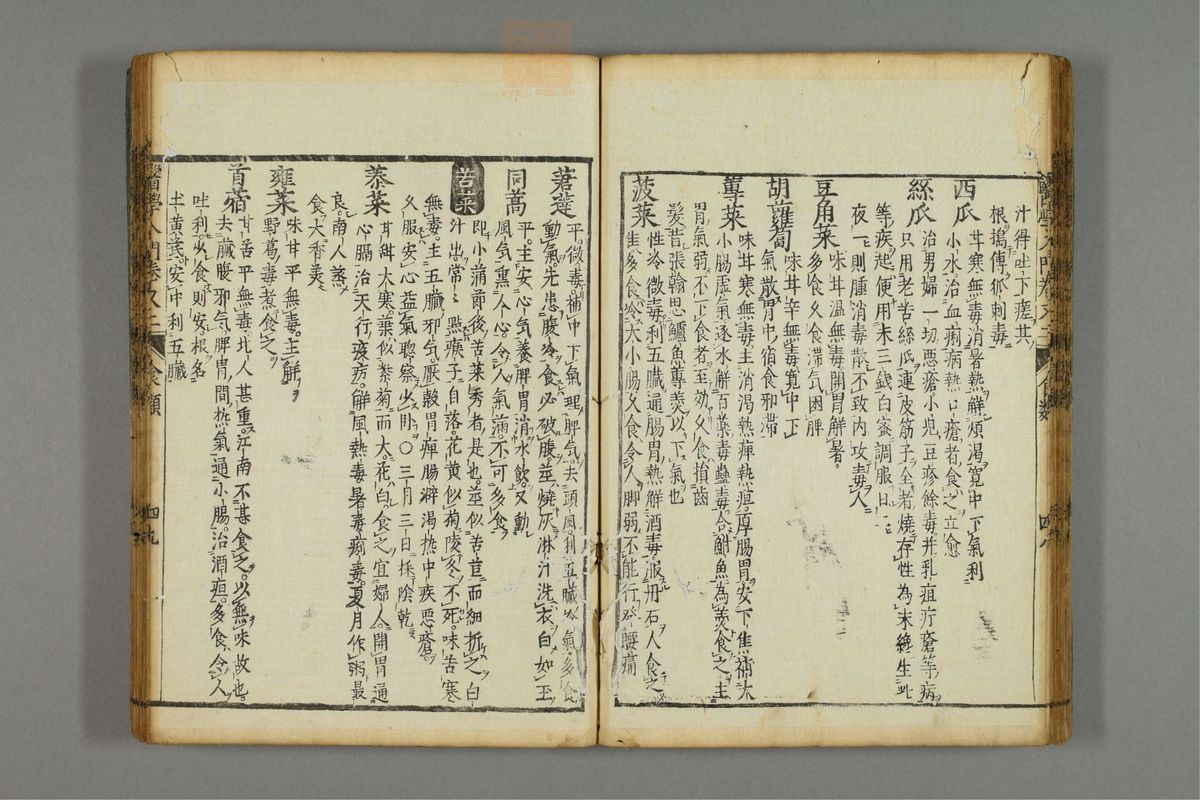 汁得吐下瘥其
根搗傅狐刺毒
西瓜 甘寒無毒消暑熱解煩渴寬中下氣利
小水治血痢病熱口瘡者食之立愈
絲瓜 治男婦一切惡瘡小兒豆疹餘毒并乳疽疔瘡等病
只用老苦絲瓜連皮筋子全者燒存性為末
等疾起便用末三錢白蜜調服日二
夜一則腫消毒散不致內攻毒人
豆角菜 味甘溫無毒開胃解暑
多食久食滯气困脾
胡蘿蔔 味甘辛無毒寬中下
氣散胃中宿食邪滯
蓴菜 味甘寒無毒主消渴熱痺熱疽厚腸胃安下焦補大
小腸虛氣逐水解百藥毒蠱毒合鮒魚為羹食之主
胃氣弱不下食者至効久食損齒
髮昔張翰思鱸魚蓴羹以下氣也
菠菜 性冷微毒利五臟通腸胃熱解酒毒服丹石人食之
佳多食冷大小腸久食令人脚弱不能行發腰痛
莙薘 平微毒補中下氣理脾气去頭風利五臟冷氣多食
動氣先患腹冷食必破腹莖燒灰淋汁洗衣白如玉
同蒿 平主安心气養脾胃消水飲又動
風气熏人心令人氣滿不可多食
苦菜 即小蒲節後苦菜秀者是也莖似苦苣而細折之白
汁出常常點瘊子自落花黃似菊陵冬不死味苦寒
無毒主五臟邪气厭穀胃痺腸澼渴热中疾惡瘡
久服安心益氣聰察少卧○三月三日採陰乾
菾菜 甘
大寒葉似紫菊而大花白食之宜婦人開胃通
心膈治天行疫疠解風熱毒暑毒痢毒夏月作粥最
良南人蒸
食大香美
雍菜 味甘平無毒主解
野葛毒煮食之
首蓿 甘苦平無毒北人甚重江南不甚食之以無味故也
去臟腹邪气脾胃間热氣通小腸治酒疸多食令人
吐利少食則安根名
土黃芪安中利五臟
醫學入門卷之二 食類 四九